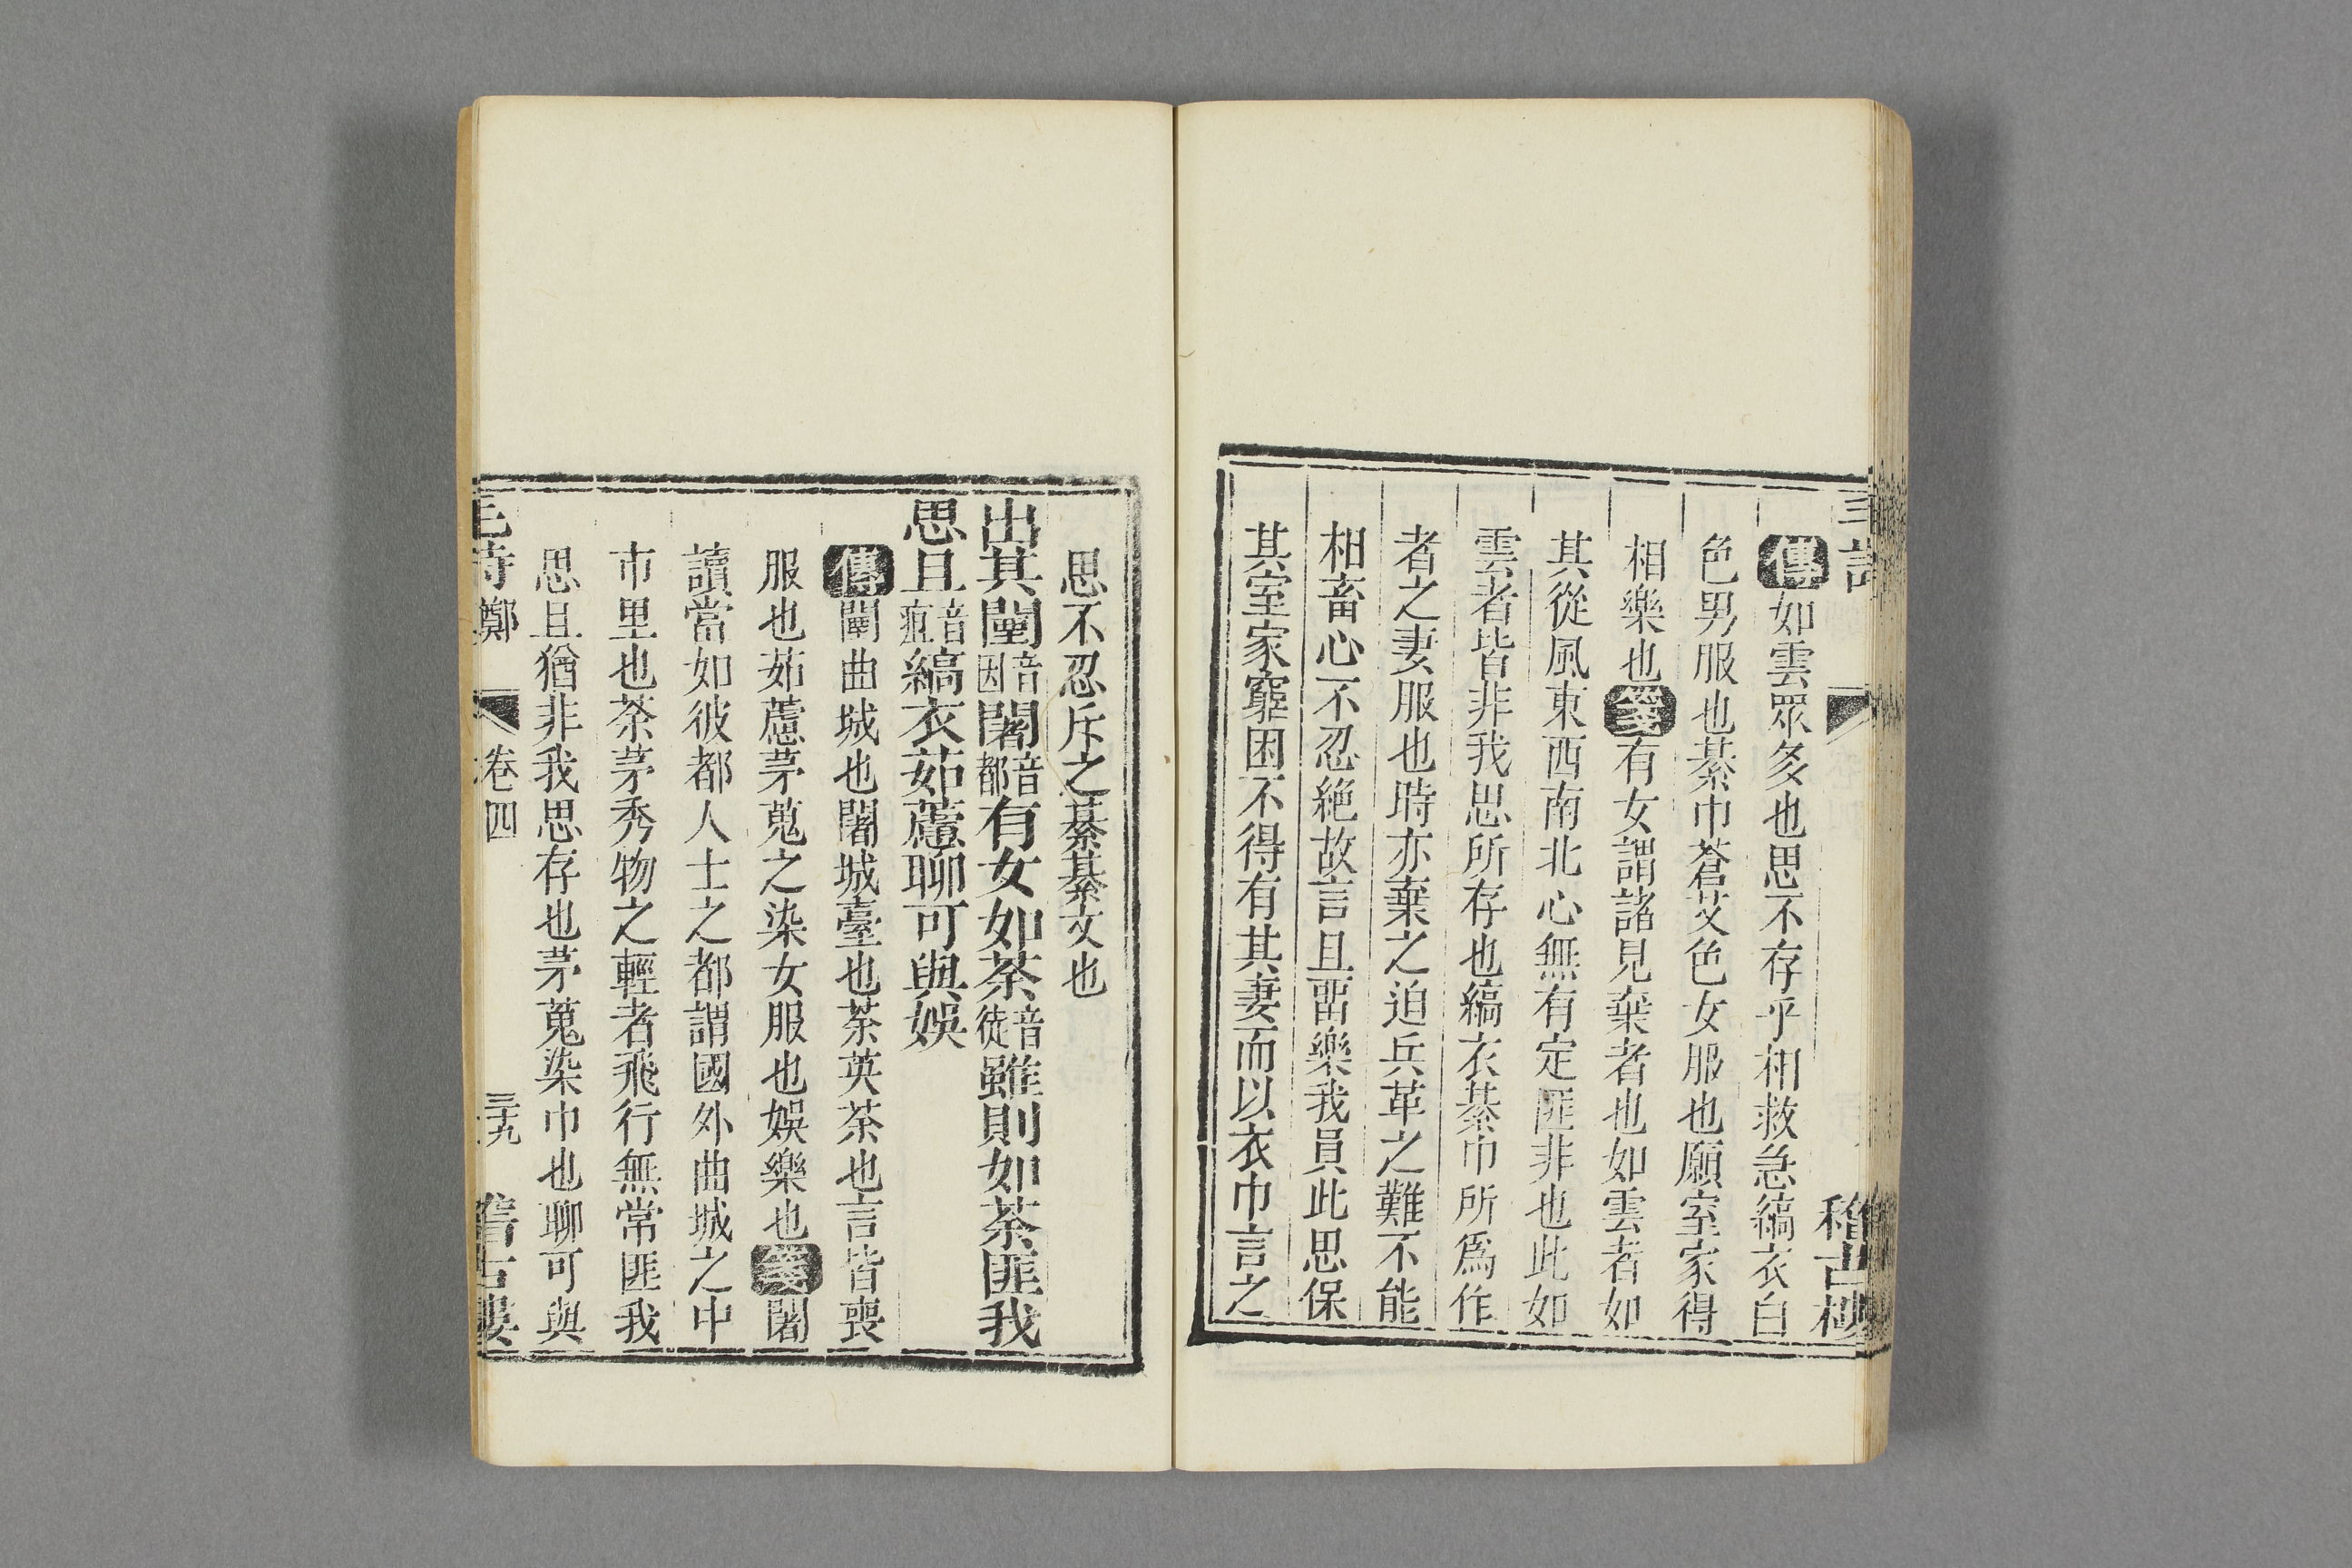 毛詩 稽古樓
傳如雲眾多也思不存乎相救急縞衣白
色男服也綦巾蒼艾色女服也願室家得
相樂也箋有女謂諸見棄者也如雲者如
其從風東西南北心無有定匪非也此如
雲者皆非我思所存也縞衣綦巾所爲作
者之妻服也時亦棄之迫兵革之難不能
相畜心不忍絶故言且畱樂我員此思保
其室家窮困不得有其妻而以衣巾言之
思不忍斥之綦綦文也
出其闉音因闍音都有女如荼音徒雖則如荼匪我
思且音疽縞衣茹藘聊可與娛
傳闉曲城也闍城臺也荼英荼也言皆喪
服也茹藘茅蒐之染女服也娛樂也箋闍
讀當如彼都人士之都謂國外曲城之中
市里也荼茅秀物之輕者飛行無常匪我
思且猶非我思存也茅蒐染巾也聊可與
毛詩鄭 卷四 三十九 稽古樓